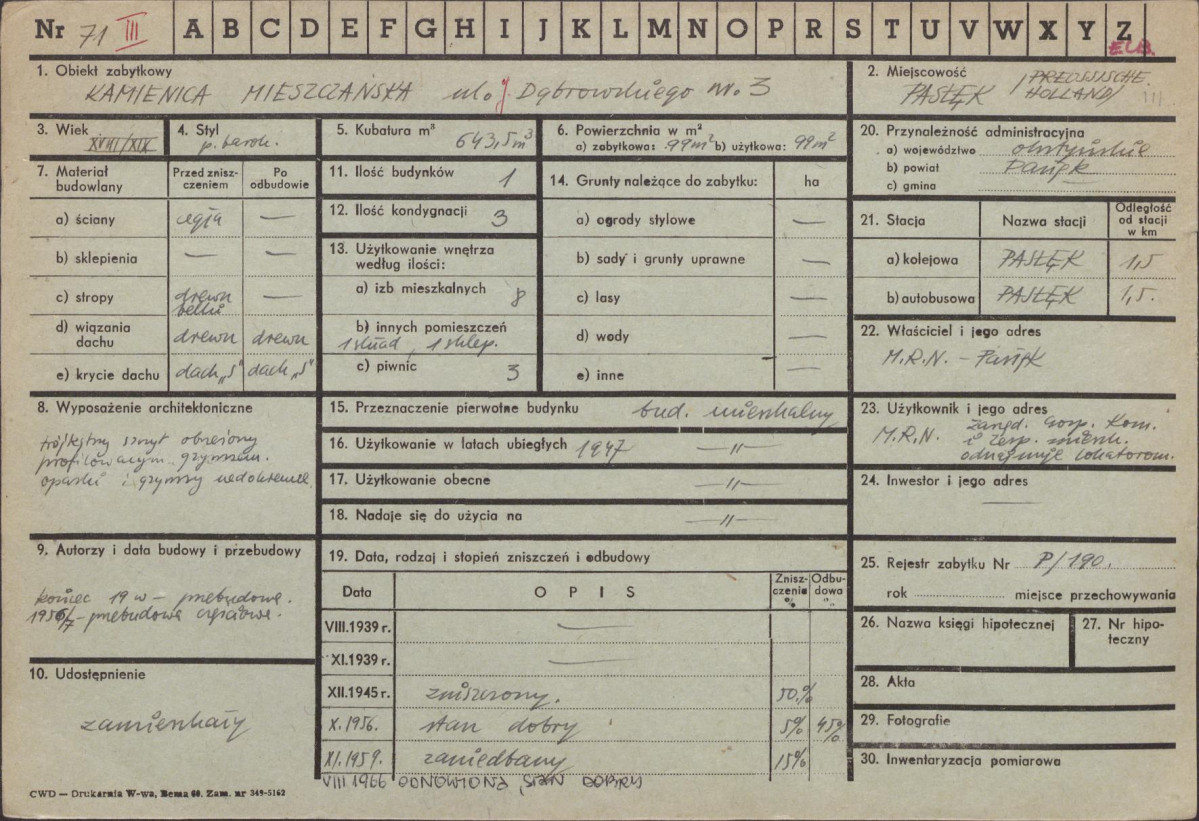 Nr 71 III A B C D E F G H I J K L M N O P R S T U V W X Y Z
ELB.
1. Obiekt zabytkowy
KAMIENICA MIESZCZAŃSKA ul. J. Dąbrowskiego nr. 3
2. Miejscowość
PASŁĘK /PREUSSISCHE HOLLAND/
3. Wiek
XVIII/XIX
4. Styl
p. barok.
5. Kubatura m³
643,5 m³
6. Powierzchnia w m²
a) zabytkowa: 99 m² b) użytkowa: 99 m²
20. Przynależność administracyjna
a) województwo olsztyńskie
b) powiat Pasłęk
c) gmina
7. Materiał budowlany
Przed zniszczeniem
Po odbudowie
a) ściany cegła —
b) sklepienia — —
c) stropy drewn belki —
d) wiązania dachu drewn drewn
e) krycie dachu dach. „S" dach. „S"
11. Ilość budynków 1
12. Ilość kondygnacji 3
13. Użytkowanie wnętrza według ilości:
a) izb mieszkalnych 8
b) innych pomieszczeń
1 skład, 1 sklep.
c) piwnic 3
14. Grunty należące do zabytku: ha
a) ogrody stylowe —
b) sady i grunty uprawne —
c) lasy —
d) wody —
e) inne —
21. Stacja Nazwa stacji Odległość od stacji w km
a) kolejowa PASŁĘK 1,5
b) autobusowa PASŁĘK 1,5.
22. Właściciel i jego adres
M.R.N. – Pasłęk
8. Wyposażenie architektoniczne
trójkątny szczyt obwiedziony
profilowanym gzymsem.
opaski i gzymsy
15. Przeznaczenie pierwotne budynku bud. mieszkalny
16. Użytkowanie w latach ubiegłych 1947 —"—
17. Użytkowanie obecne —"—
18. Nadaje się do użycia na —"—
23. Użytkownik i jego adres
M.R.N. Zarząd. Gosp. Kom.
i Zesp. mieszk.
odnajmuje lokatorom.
24. Inwestor i jego adres
—
9. Autorzy i data budowy i przebudowy
koniec 19 w – przebudowa.
1956/7 – przebudowa częściowa.
10. Udostępnienie
zamieszkały
19. Data, rodzaj i stopień zniszczeń i odbudowy
Data OPIS Zniszczenia % Odbudowa %
VIII.1939 r. —
XI.1939 r. —
XII.1945 r. zniszczony. 50.%
X.1956. stan dobry 5% 45%
XI.1959. zaniedbany 15%
VIII 1966 ODNOWIONA, STAN DOBRY
25. Rejestr zabytku Nr P/190.
rok miejsce przechowywania
26. Nazwa księgi hipotecznej
27. Nr hipoteczny
28. Akta
29. Fotografie
30. Inwentaryzacja pomiarowa
CWD — Drukarnia W-wa, Bema 60. Zam. nr 349-5162